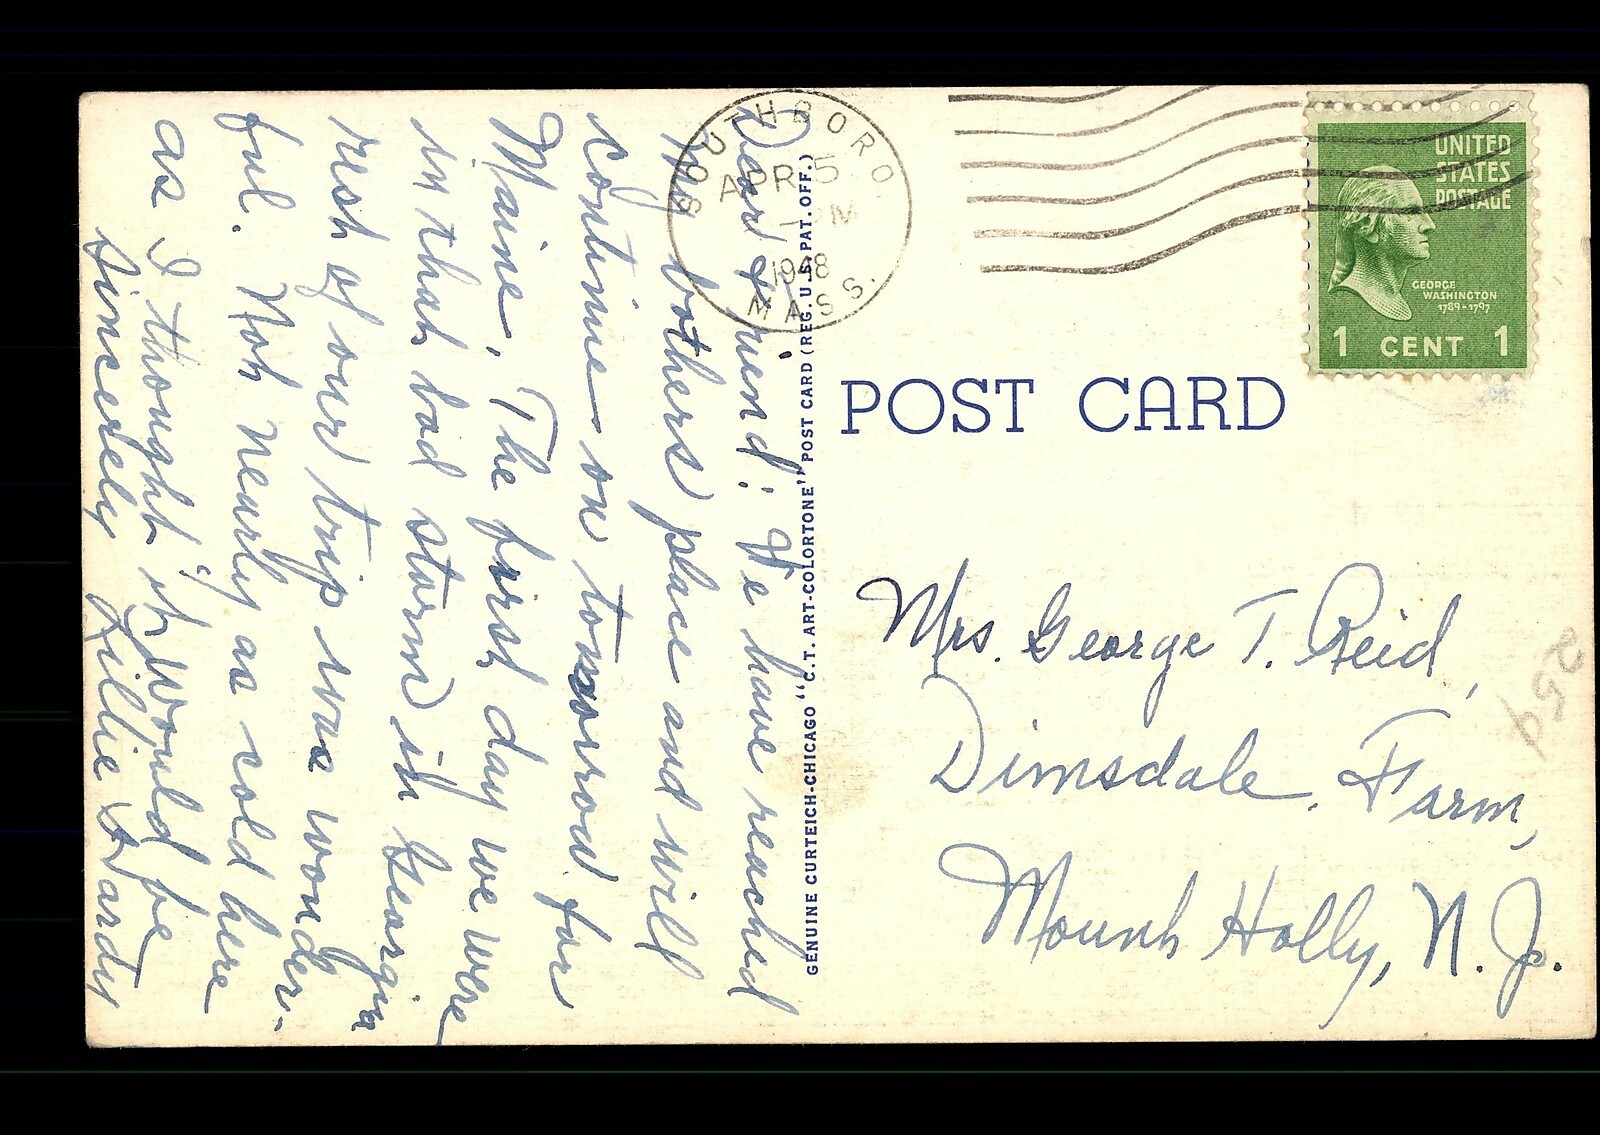 Dear Friend: We have reached
my bothers place and will
continue on tomorrow for
Maine. The first day we were
in that bad storm in Georgia
rest of our trip was wonder-
ful. Not nearly as cold here
as I thought it would be
Sincerely Lillie Hardy
SOUTHBORO
APR 5
-PM
1948
MASS.
GENUINE CURTEICH-CHICAGO "C.T. ART-COLORTONE" POST CARD (REG. U.S. PAT. OFF.)
UNITED
STATES
POSTAGE
GEORGE
WASHINGTON
1789-1797
1 CENT 1
POST CARD
Mrs. George T. Reid,
Dimsdale Farm,
Mount Holly, N. J.
259